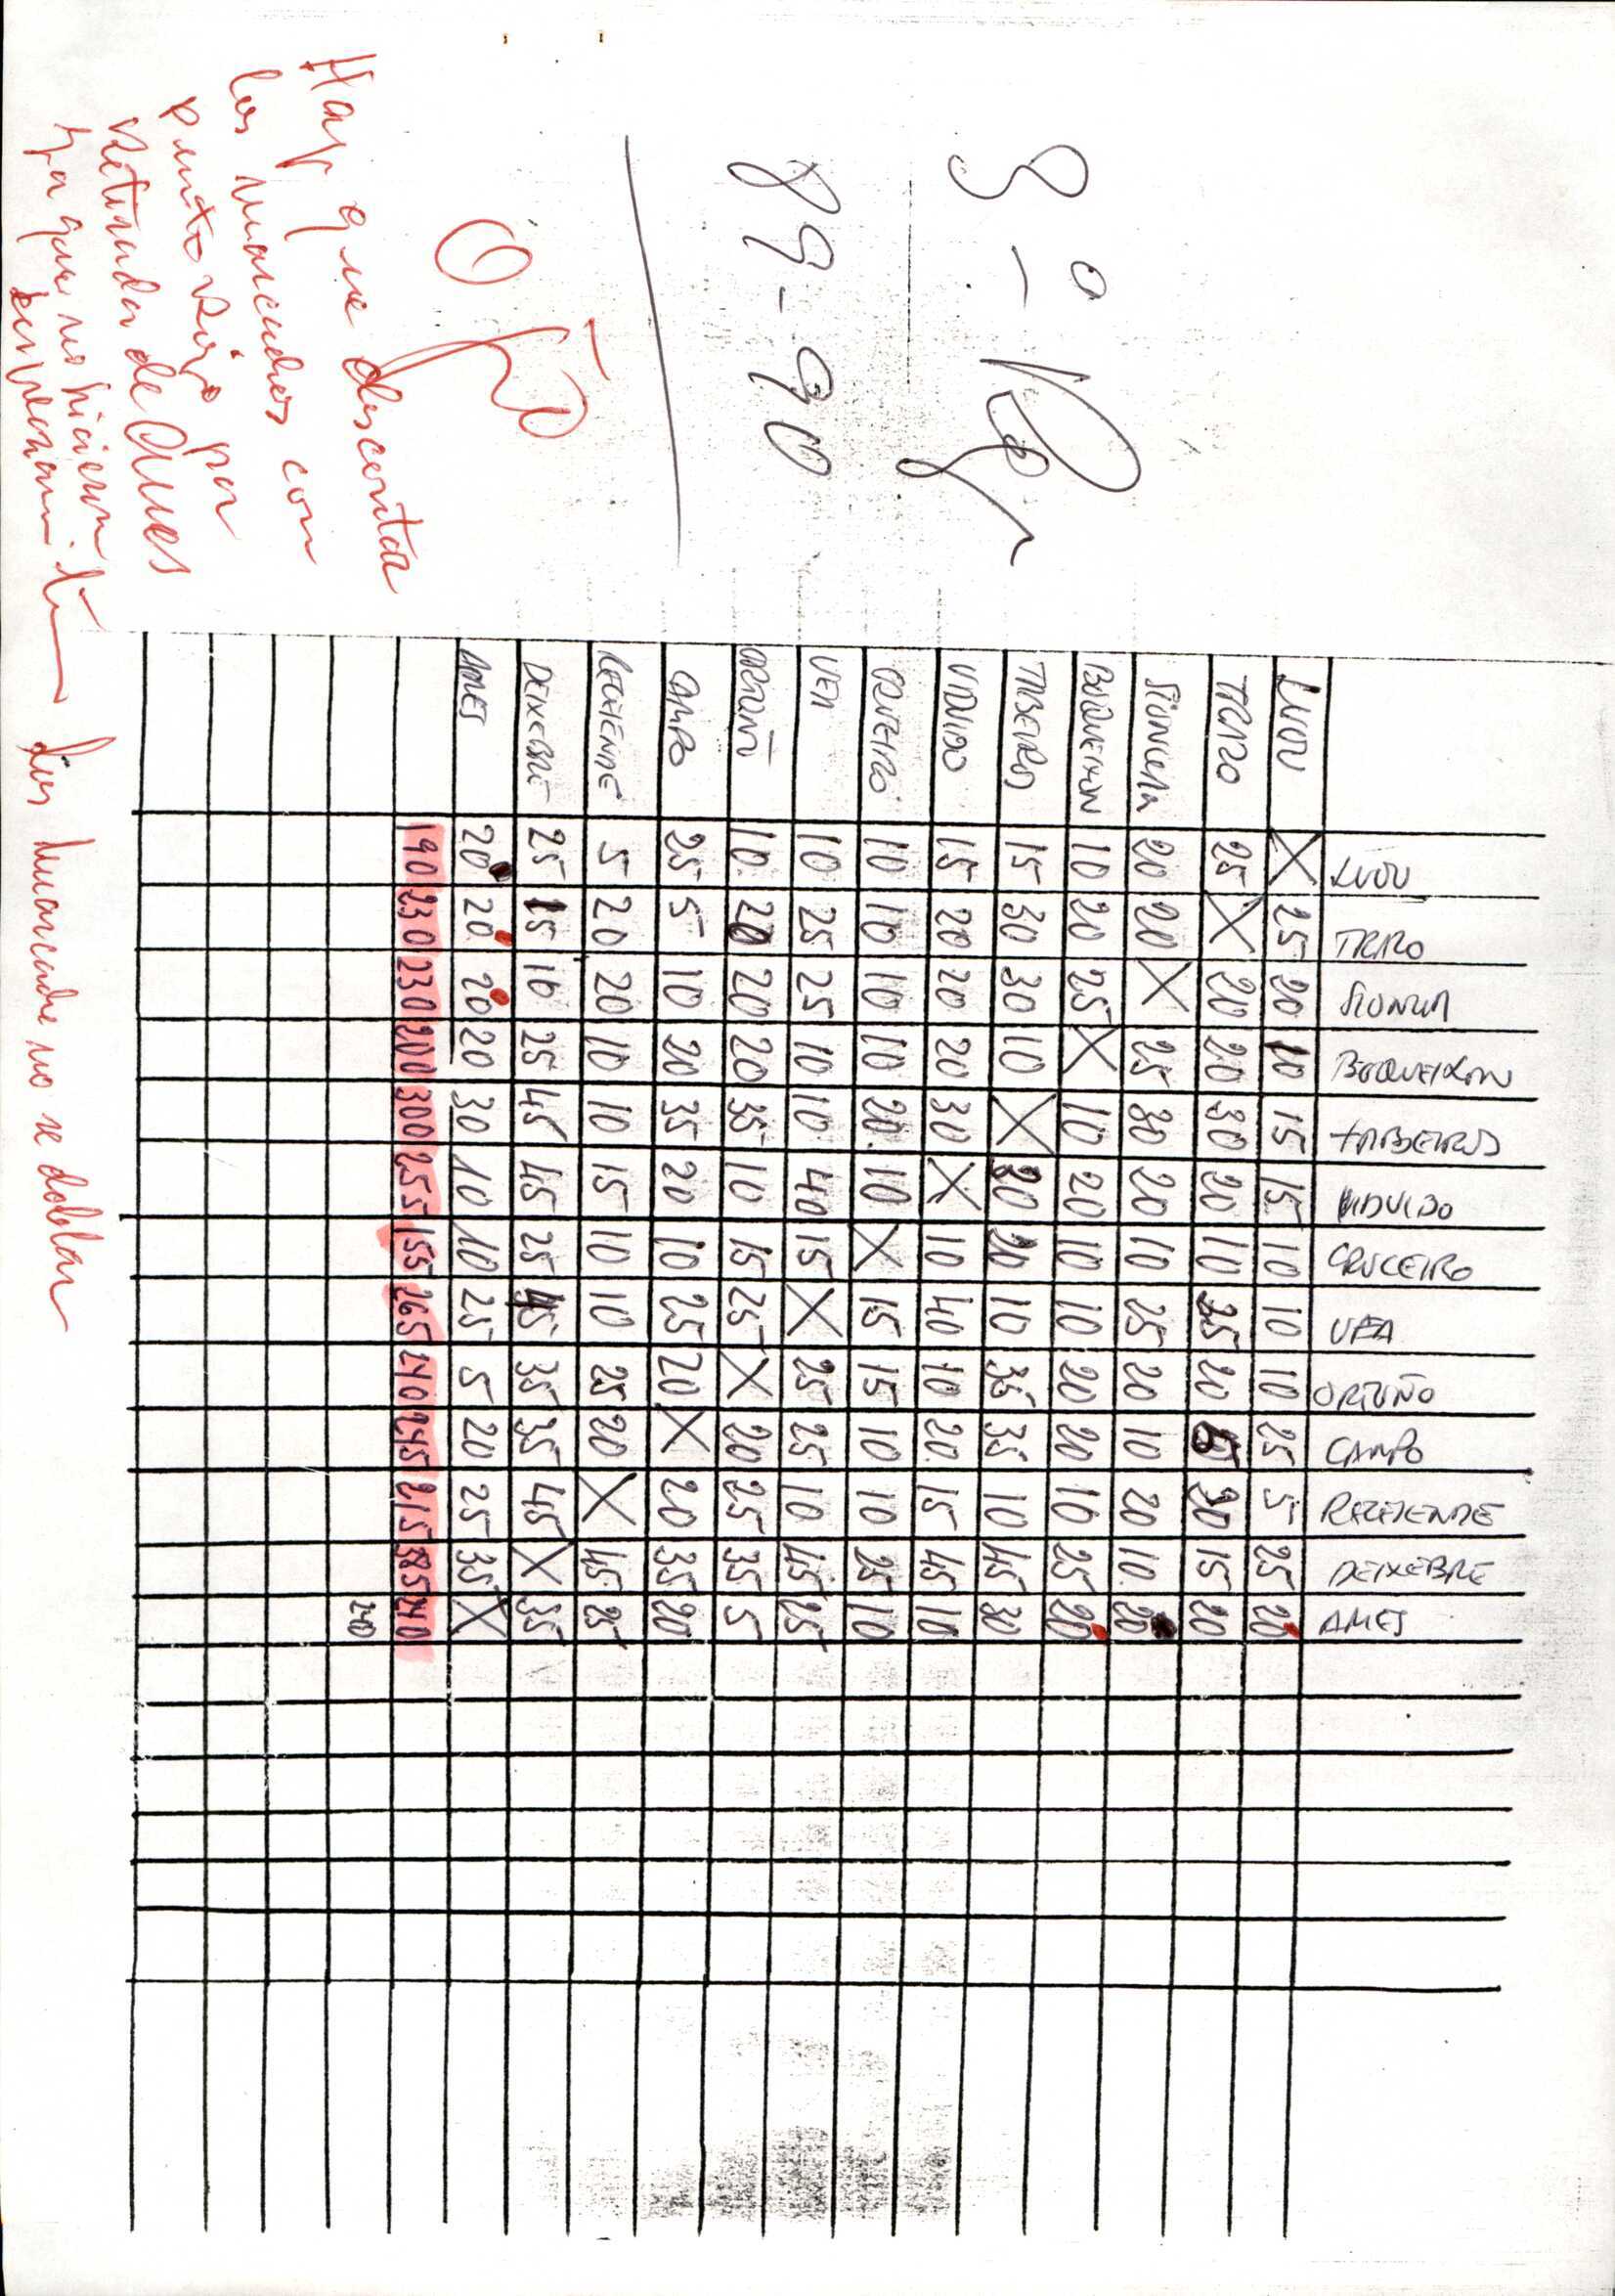 3ª - Reg
89-90
OJO
Hay que descontar
los marcados con
punto rojo por
retirada de Ames
ya que no hicieron
Los marcados no se doblan
LUOU TRAZO SIONLLA BOQUEIXON TABEIROS VIDUIDO CRUCEIRO VEA ORTOÑO CAMPO DEIXEBRE AMES
LUOU X 25 20 10 15 15 10 10 10 25 5 25 20
TRAZO 25 X 20 20 30 20 10 35 20 5 30 15 20
SIONLLA 20 20 X 25 30 20 10 25 20 10 20 10 20
BOQUEIXON 10 20 25 X 10 20 10 10 20 20 10 25 20
TABEIROS 15 30 30 10 X 30 20 10 35 35 10 45 30
VIDUIDO 15 20 20 20 30 X 10 40 10 20 15 45 10
CRUCEIRO 10 10 10 10 20 10 X 15 15 10 10 25 10
VEA 10 25 25 10 10 40 15 X 25 25 10 45 25
ORTOÑO 10 20 20 20 35 10 15 25 X 20 25 35 5
CAMPO 25 5 10 20 35 20 10 25 20 X 20 35 20
5 20 20 10 10 15 10 10 25 20 X 45 25
DEIXEBRE 25 15 10 25 45 45 25 45 35 35 45 X 35
AMES 20 20 20 20 30 10 10 25 5 20 25 35 X
190 230 230 200 300 255 155 265 240 245 215 385 240
240